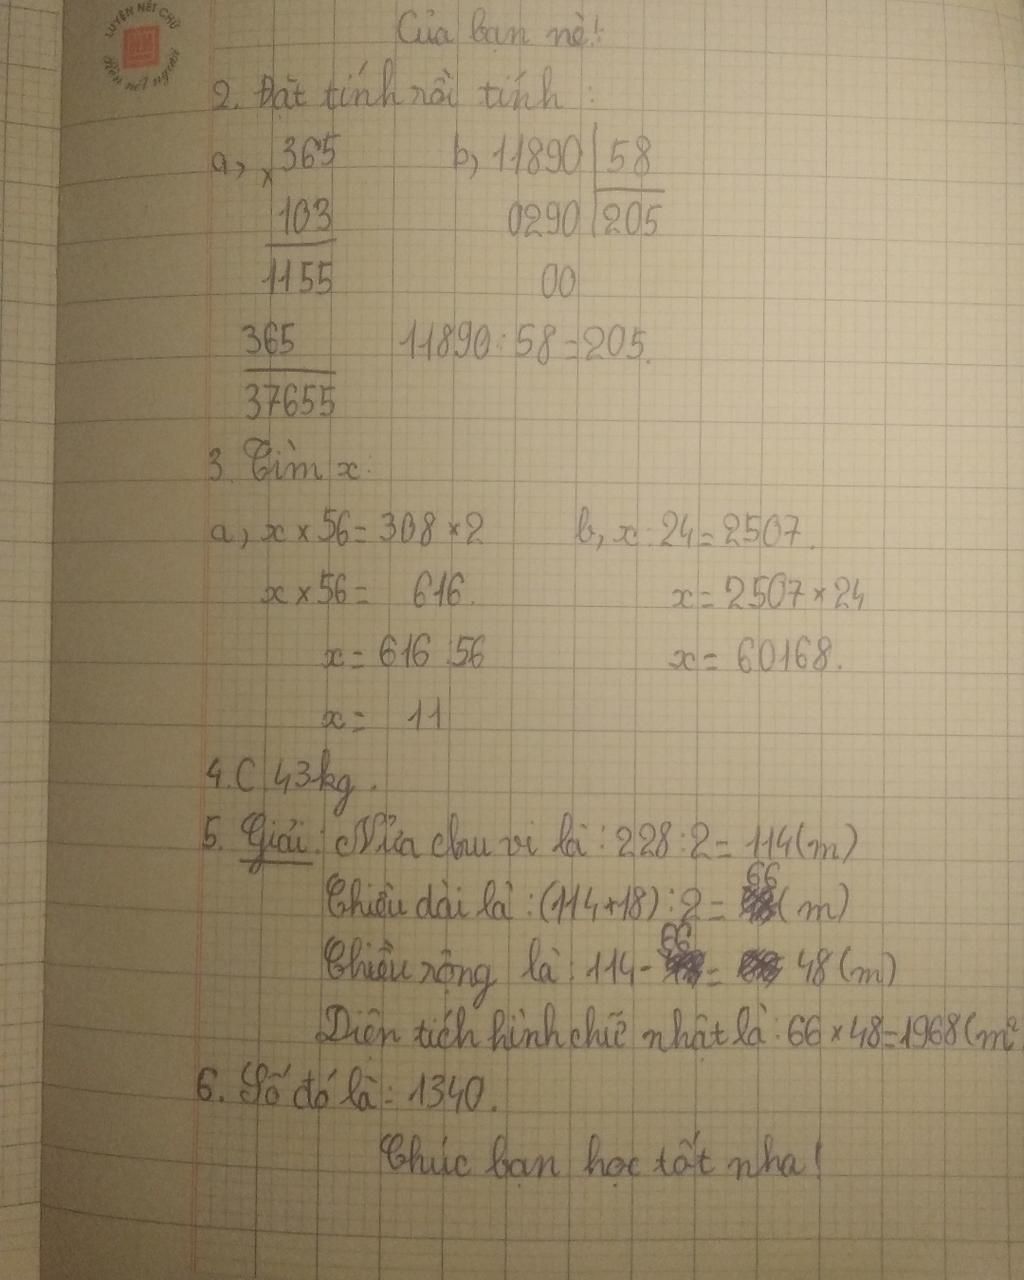 LUYỆN NÉT CHỮ
Rèn nết người
Của bạn nè!
2. Đặt tính rồi tính:
a, x 365 b, 11890 58
103 0290 205
1155 00
365 11890:58=205.
37655
3. Tìm x:
a, x × 56 = 308 × 2 b, x : 24 = 2507.
x × 56 = 616. x = 2507 × 24
x = 616 : 56 x = 60168.
x = 11
4. C 43kg.
5. Giải: Nửa chu vi là: 228:2= 114(m)
Chiều dài là: (114+18):2= 66(m)
Chiều rộng là: 114-66= 48(m)
Diện tích hình chữ nhật là: 66 × 48=1968(m²
6. Số đó là: 1340.
Chúc bạn học tốt nha!